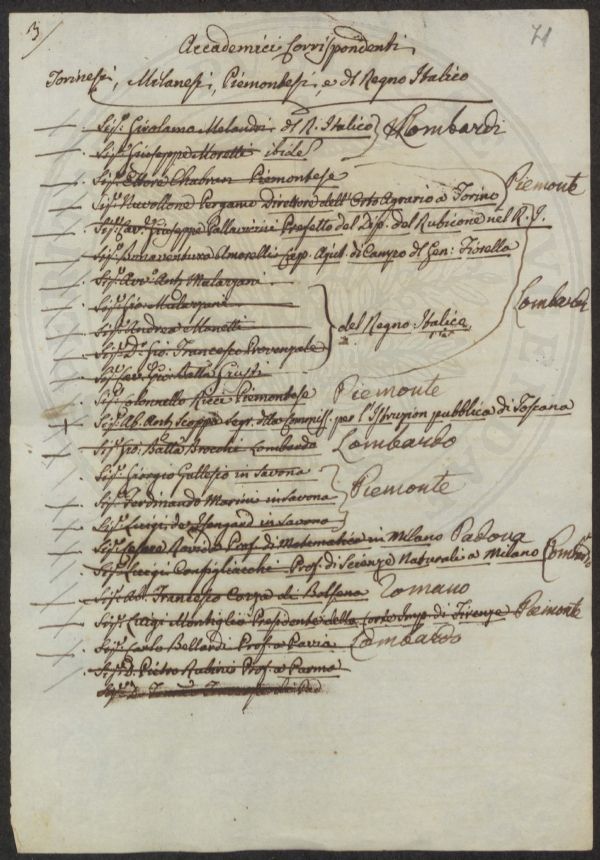 3/
71
Accademici Corrispondenti
Torinesi, Milanesi, Piemontesi, e dl Regno Italico
Sig.r Girolamo Melandri dl R. Italico Lombardi
Sig.r Giuseppe Moretti ibid.
Sig.r Ettore Chabran Piemontese
Sig.r Direttore dell'Orto Agrario a Torino Piemonte
Sig.r Cav. Giuseppe Pallavicini Prefetto del Dip. del Rubicone nel R. I.
Sig.r Bonaventura Amorelli Cap. Ajut. di Campo dl Gen: Fiorella
Sig.r Avv. Ant.
Sig.r Gio. Lombardi
Sig.r Andrea
del Regno Italico
Sig.r D.r Gio. Francesco Provenzale
Sig.r Gio. Batta Giusti
Sig.r Colonnello Ricci Piemontese Piemonte
Sig.r Ab. Ant. Scoppa Segr. dlla Commiss. per l'Istruzion pubblica di Toscana
Sig.r Gio. Batta Brocchi Lombardo Lombardo
Sig.r Giorgio Gallesio in Savona
Sig.r Ferdinando Marini in Savona Piemonte
Sig.r Luigi de in Savona
Sig.r Cesare Rovida Prof. di Matematica in Milano Padova
Sig.r Luigi Configliacchi Prof. di Scienze Naturali a Milano Lombardo
Sig.r Ab. Francesco Corza di Bolsena Romano
Sig.r Luigi Montiglio Presidente della Corte Imp. di Firenze Piemonte
Sig.r Carlo Bellardi Prof. a Pavia Lombardo
Sig.r D. Pietro Rubini Prof. a Parma